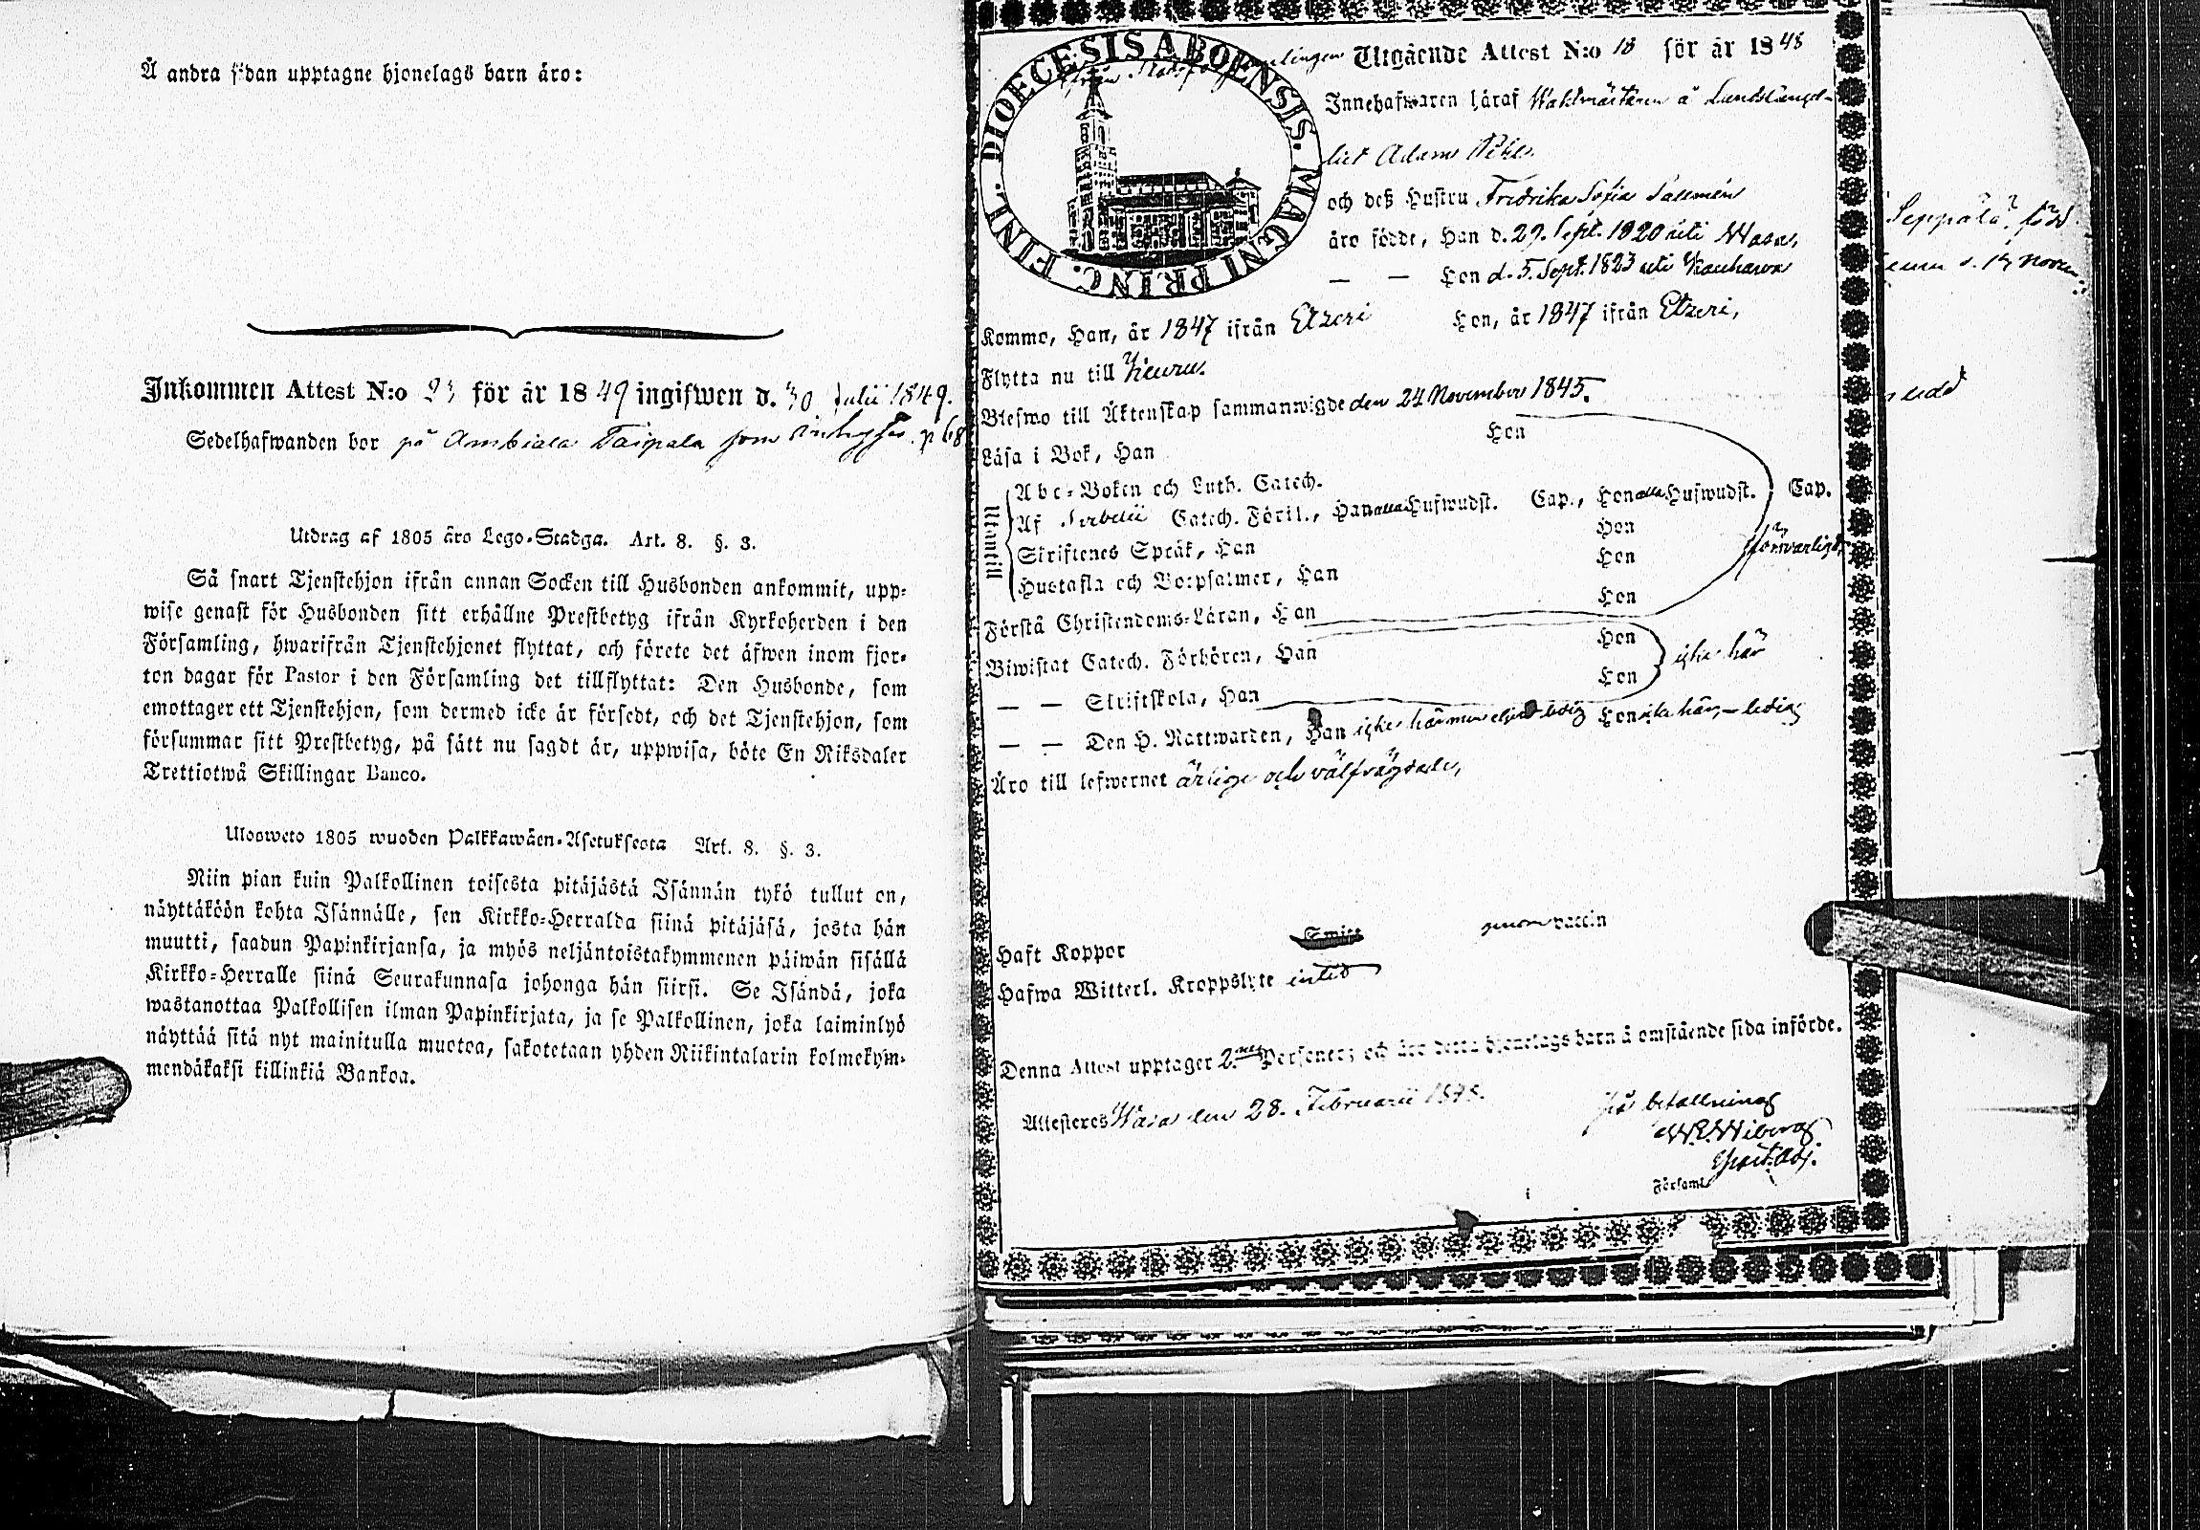 Å andra sidan upptagne hjonelags barn äro:
Inkommen Attest N:o 23 för år 1849 ingifwen d. 30 Julii 1849.
Sedelhafwanden bor på Ambiala Taipale som p 68
Utdrag af 1805 års Lego-Stadga. Art. 8. §. 3.
Så snart Tjenstehjon ifrån annan Socken till Husbonden ankommit, upp-
wise genast för Husbonden sitt erhållne Prestbetyg ifrån Kyrkoherden i den
Församling, hwarifrån Tjenstehjonet flyttat, och förete det äfwen inom fjor-
ton dagar för Pastor i den Församling det tillflyttat: Den Husbonde, som
emottager ett Tjenstehjon, som dermed icke är försedt, och det Tjenstehjon, som
försummar sitt Prestbetyg, på sätt nu sagdt är, uppwisa, böte En Riksdaler
Trettiotwå Skillingar Banco.
Ulosweto 1805 wuoden Palkkawäen-Asetuksesta Art. 8. §. 3.
Niin pian kuin Palkollinen toisesta pitäjästä Isännän tykö tullut on,
näyttäköön kohta Isännälle, sen Kirkko-Herralda siinä pitäjäsä, josta hän
muutti, saadun Papinkirjansa, ja myös neljäntoistakymmenen päiwän sisällä
Kirkko-Herralle siinä Seurakunnasa johonga hän siirsi. Se Isändä, joka
wastanottaa Palkollisen ilman Papinkirjata, ja se Palkollinen, joka laiminlyö
näyttää sitä nyt mainitulla muotoa, sakotetaan yhden Riikintalarin kolmekym-
mendäkaksi killinkiä Bankoa.
DIOECESIS ABOENSIS. MAGNI PRINC. FINL.
Från Stadsförsamlingen Utgående Attest N:o 18 för år 1848
Innehafwaren häraf Waktmästaren å Landskansli-
et Adam
och deß Hustru Fredrika Sofia Sallmén
äro födde, Han d. 29. Sept. 1820 uti Wasa,
— — Hon d. 5. Sept. 1823 uti Kauhawa
Komme, Han, år 1847 ifrån Etzeri Hon, år 1847 ifrån Etzeri,
Flytta nu till Keuru.
Blefwo till Äktenskap sammanwigde den 24 November 1845.
Läsa i Bok, Han Hon
Utantill
Abc-Boken och Luth. Catech.
Af Catech. Förkl., Han alla Hufwudst. Cap., Hon alla Hufwudst. Cap.
Skriftenes Språk, Han Hon
Hustafla och Botpsalmer, Han Hon
försvarligt
Förstå Christendoms-Läran, Han Hon
Biwistat Catech. Förhören, Han Hon
icke här
— — Skriftskola, Han Hon
— — Den H. Nattwarden, Han icke här men ledig Hon icke här, – ledig
Äro till lefwernet ärlige och välfrägdade,
Haft Koppor Smitt genom vaccin
Hafwa Witterl. Kroppslyte intet
Denna Attest upptager 2.ne Personer; och äro detta hjonelags barn å omstående sida införde.
Attesteres Wasa den 28. Februarii 1848.
På befallning
W. E. Wiberg
Past. Adj.
Församl.
Seppälä? född